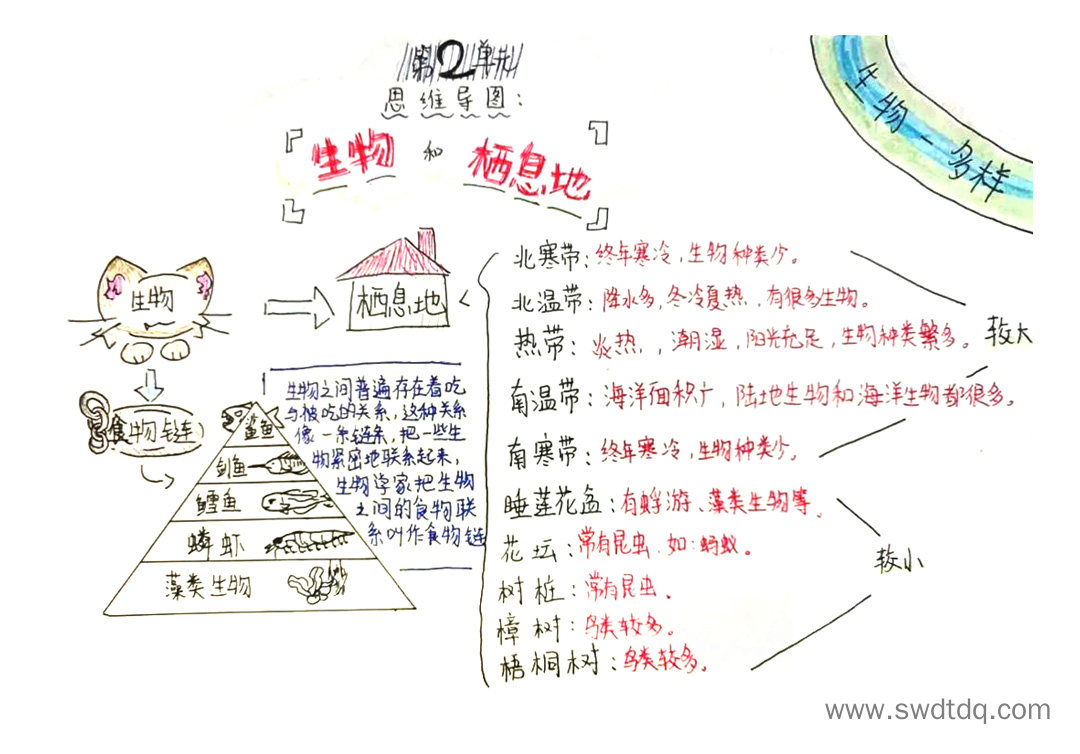 第2单元
思维导图：
生物和栖息地
生物·多样
生物
栖息地
食物链
鲨鱼
剑鱼
鳕鱼
磷虾
藻类生物
生物之间普遍存在着吃
与被吃的关系，这种关系
像一条链条，把一些生
物紧密地联系起来，
生物学家把生物
之间的食物联
系叫作食物链
北寒带：终年寒冷，生物种类少。
北温带：降水多，冬冷夏热，有很多生物。
热带：炎热，潮湿，阳光充足，生物种类繁多。
南温带：海洋面积广，陆地生物和海洋生物都很多。
南寒带：终年寒冷，生物种类少。
较大
睡莲花盆：有蜉游、藻类生物等、
花坛：常有昆虫、如：蚂蚁。
树桩：常有昆虫、
樟树：鸟类较多。
梧桐树：鸟类较多。
较小
www.swdtdq.com